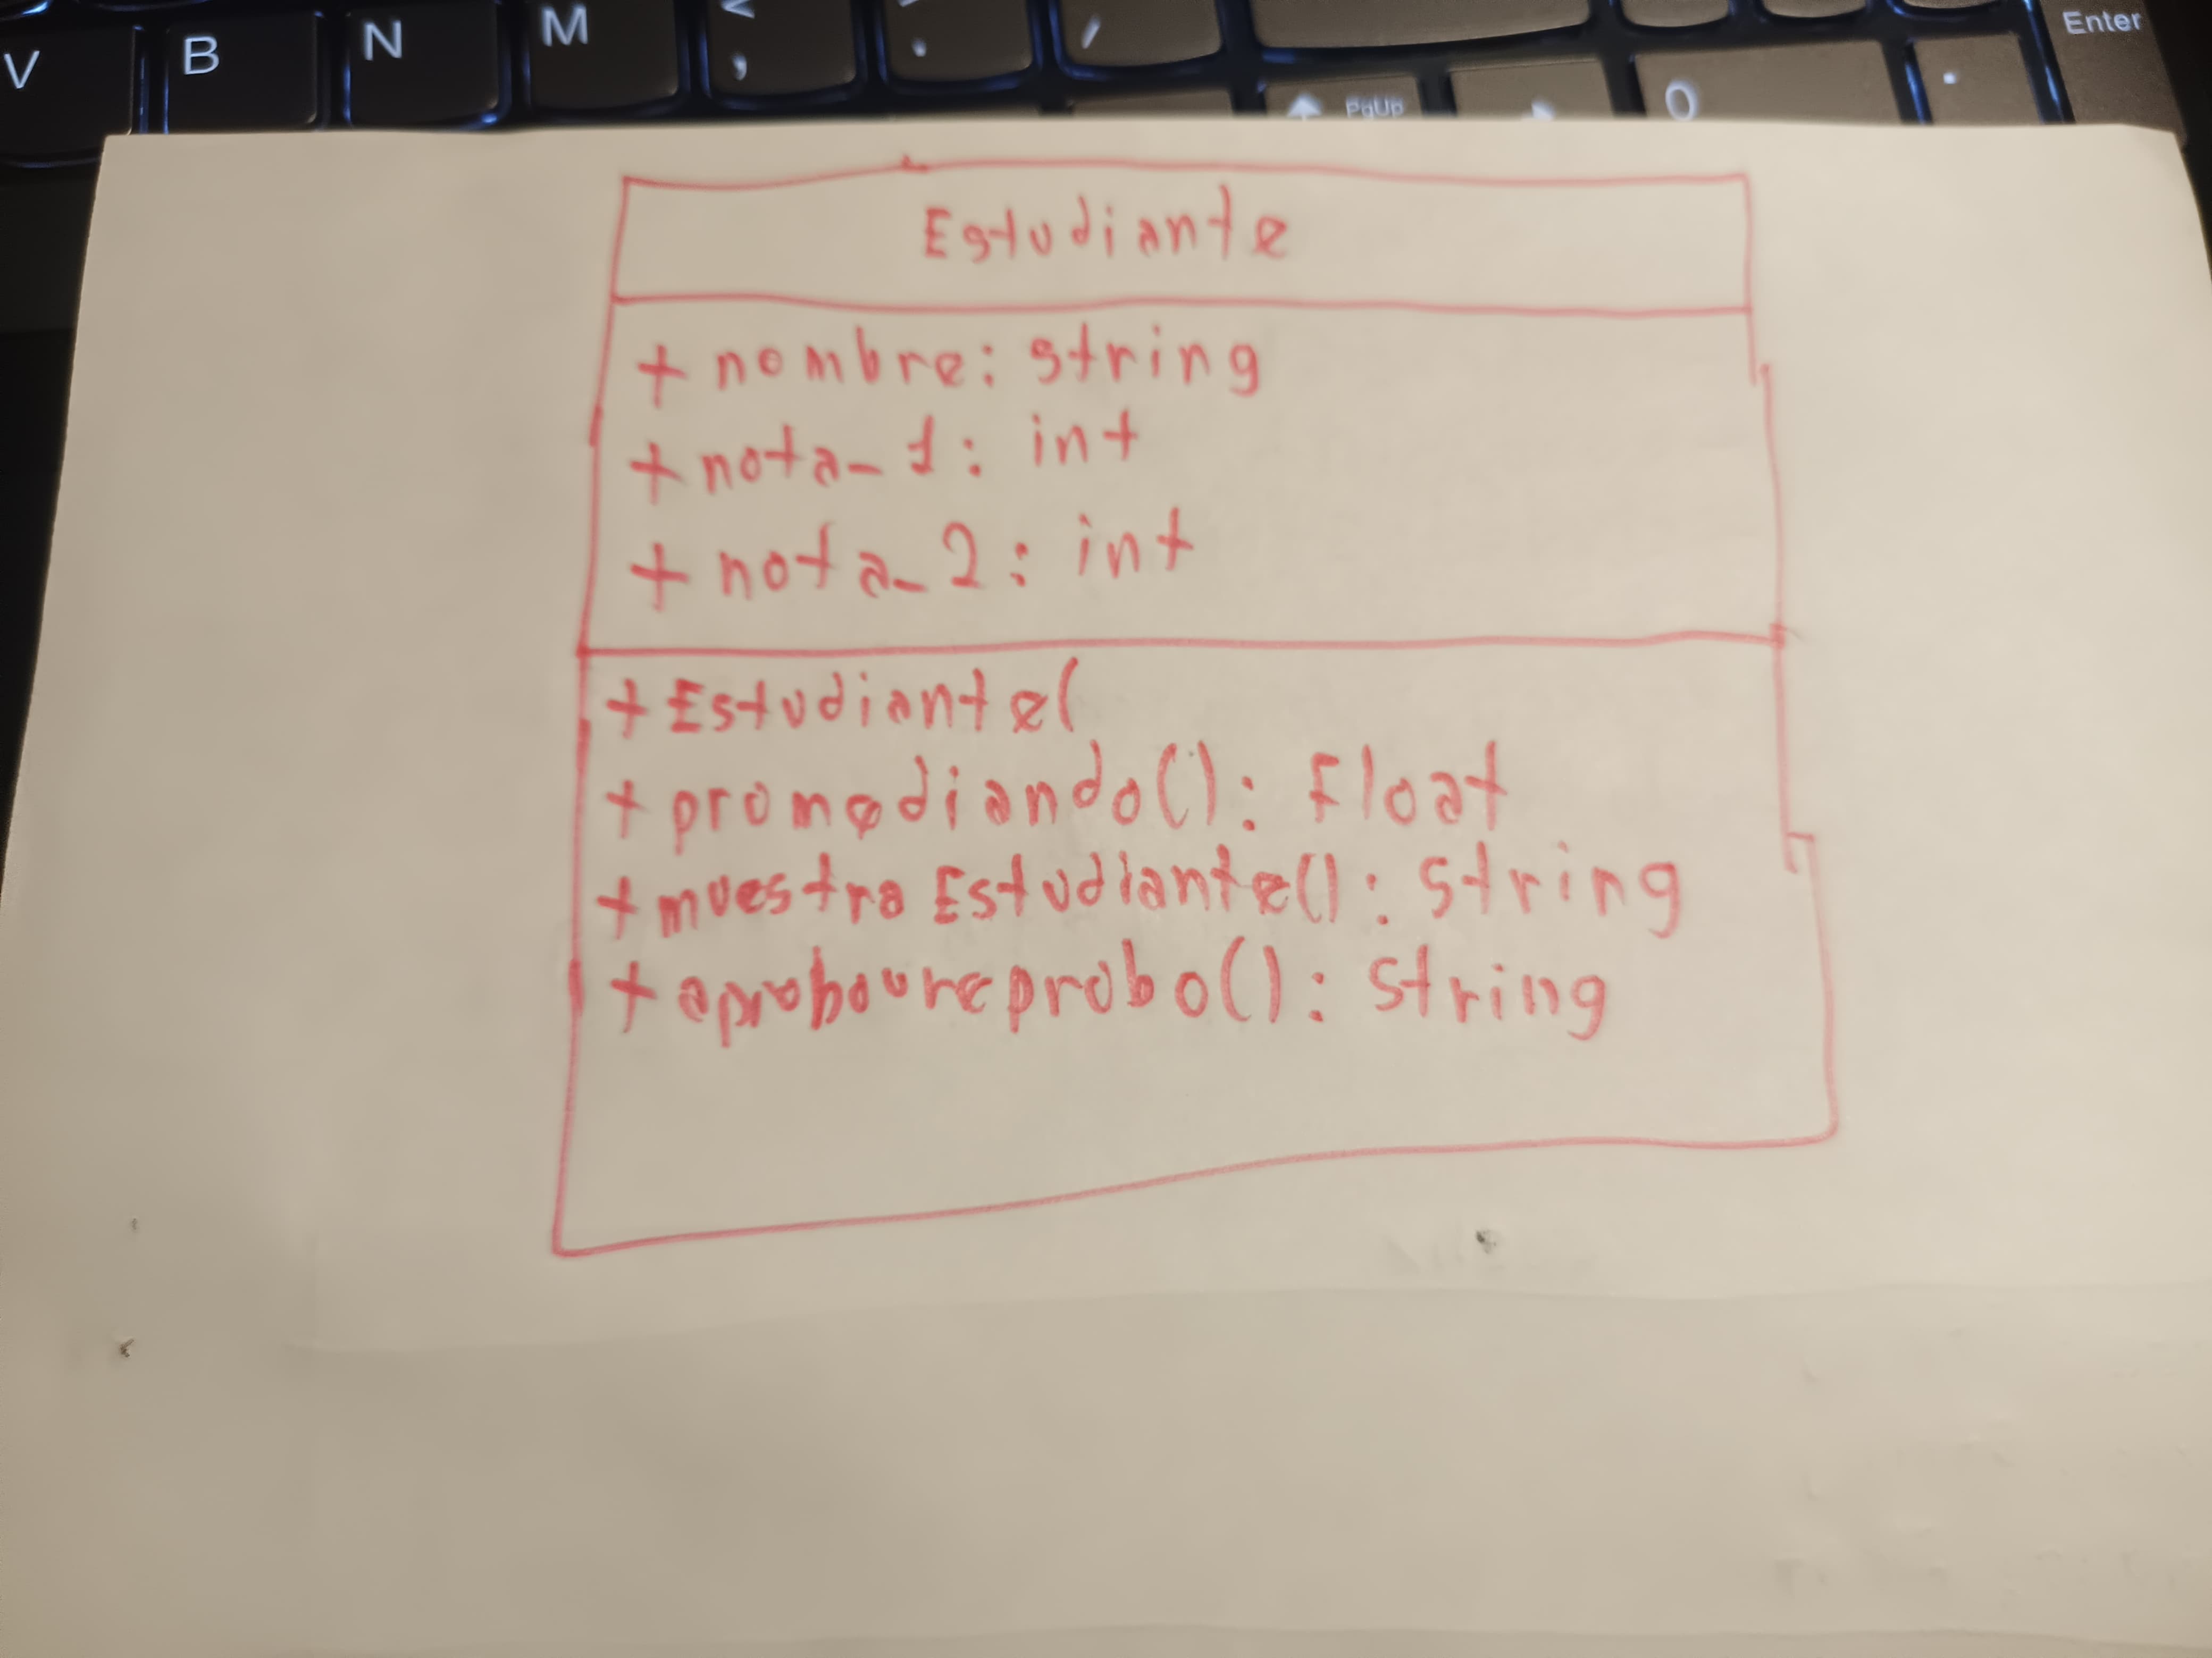 V B N M < , . / Enter
PgUp 0 .
Estudiante
+ nombre: string
+ nota_1: int
+ nota_2: int
+ Estudiante(
+ promediando(): Float
+ muestra Estudiante(): string
+ aproboureprobo(): string